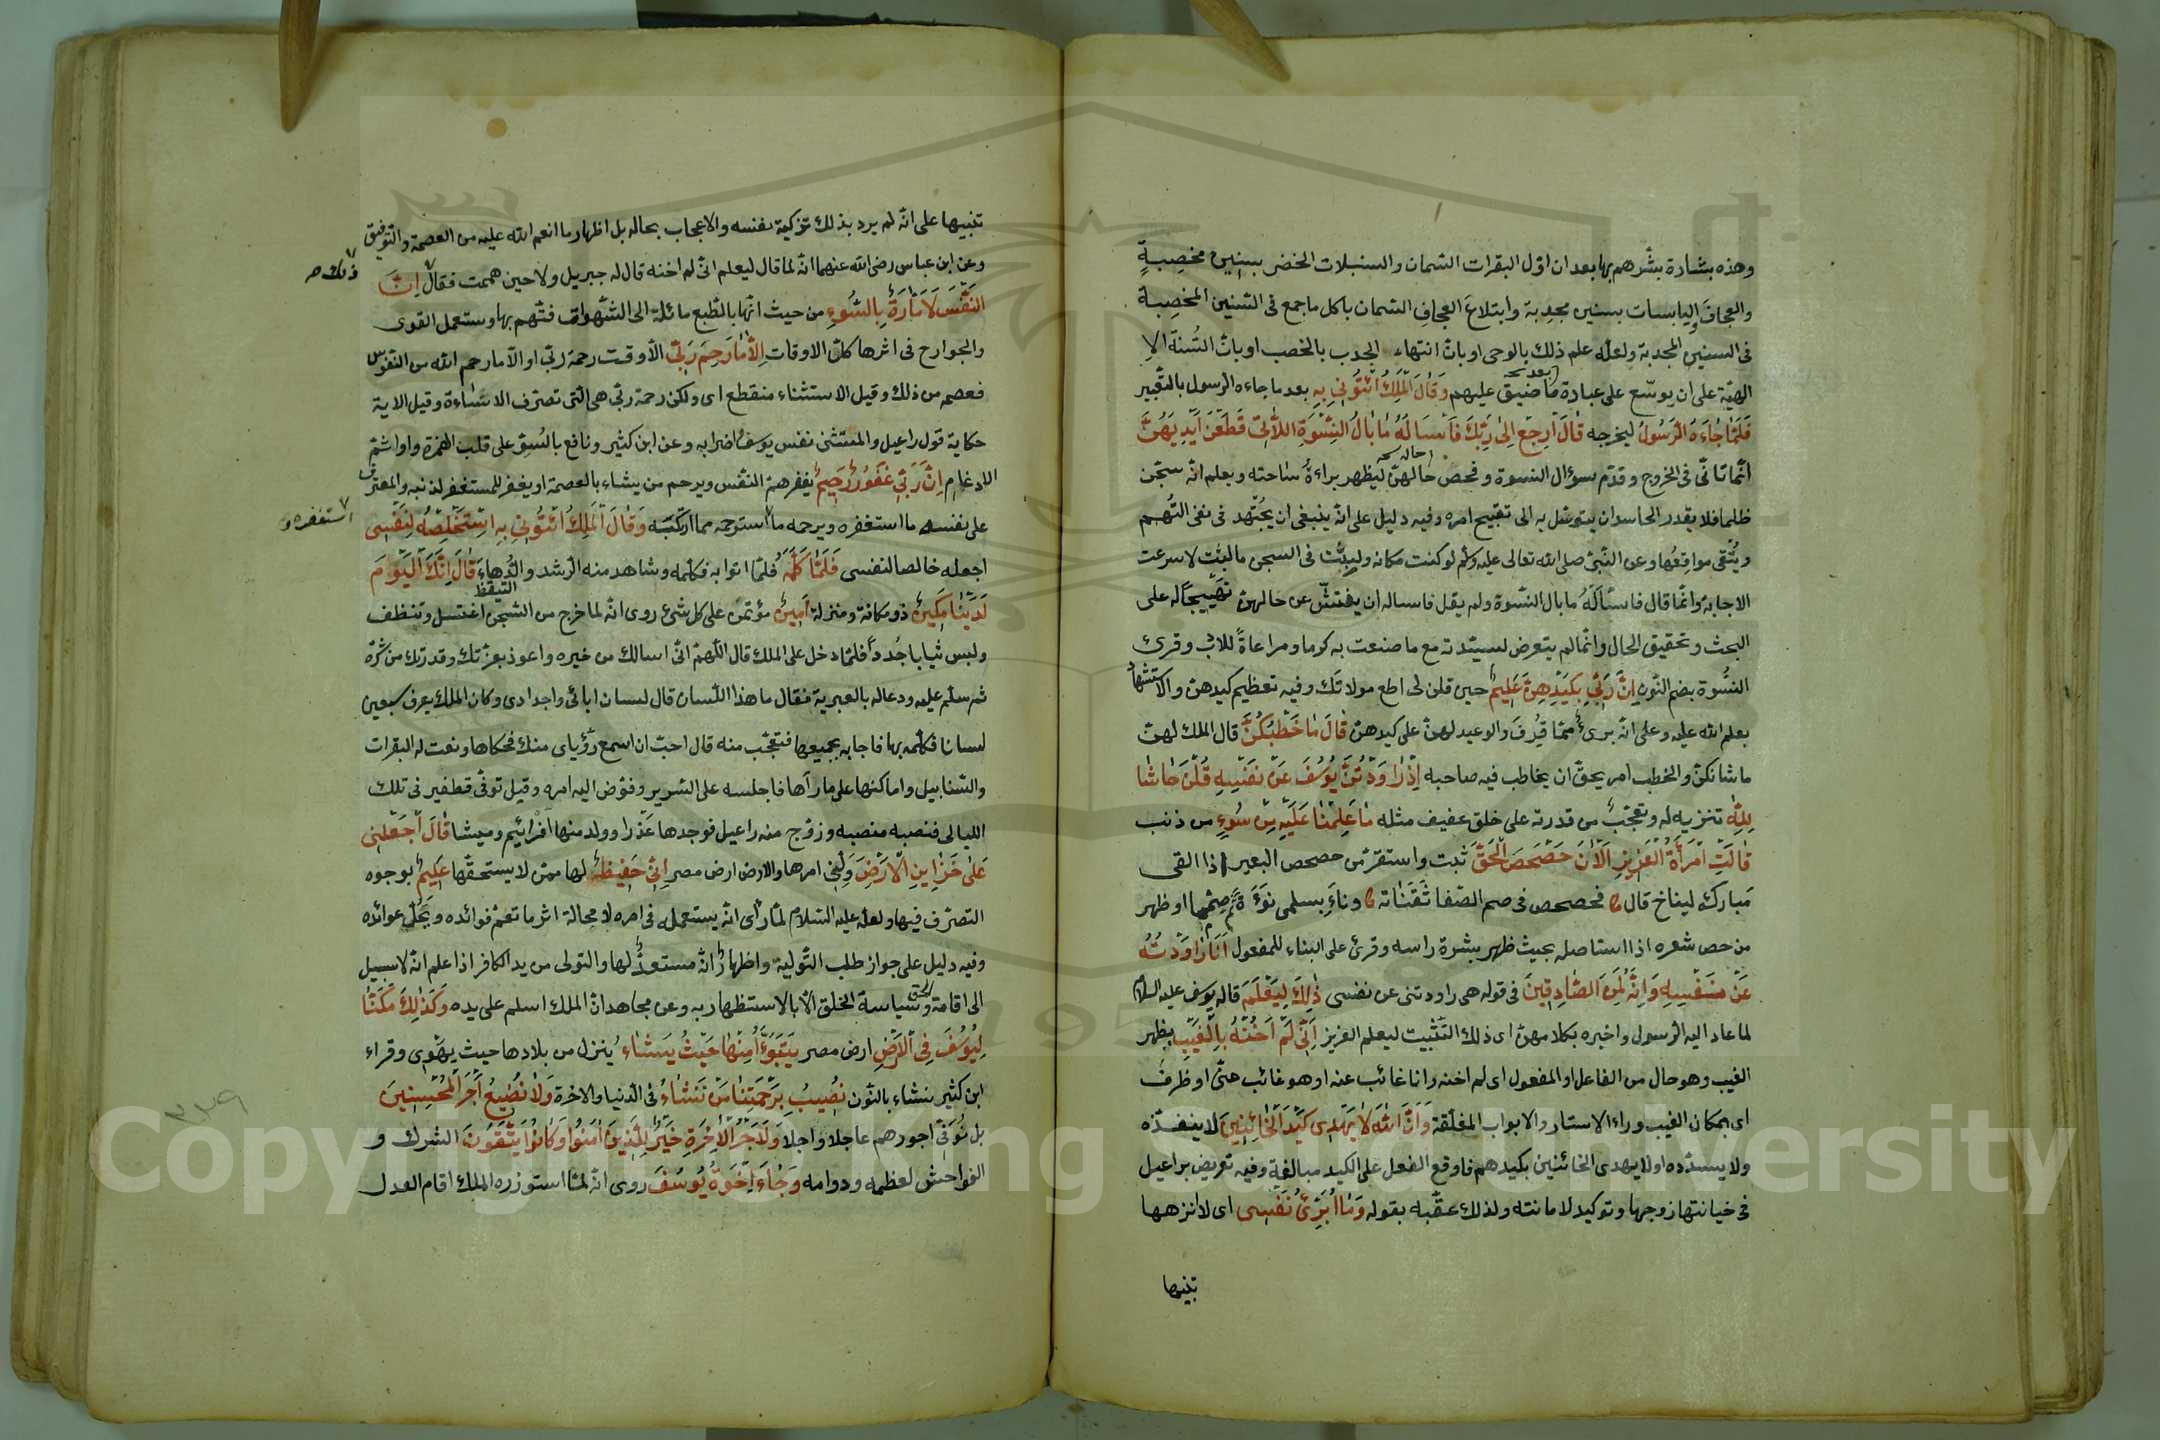 وهذه بشارة بشرهم بها بعد ان اول البقرات السمان والسنبلات الخضر بسنين مخصِبةٍ
والعجافَ واليابسات بسنين مجدبة وابتلاعَ العجافِ السمان باكل ما جمع فى السنين المخصِبة
فى السنين المجدبة ولعلّه علم ذلك بالوحى او بانّ انتهاء الجدب بالخصب او بانّ السُنة الا
الهيّة على ان يوسّع على عباده بعد ما ضيق عليهم وَقَالَ الْمَلِكُ ائْتُونِى بِهِ بعد ما جاءه الرسول بالتعبير
فَلَمَّا جَاءَهُ الرَّسُولُ ليخرجه قَالَ ارْجِعْ اِلٰى رَبِّكَ فَاسْـَٔالْهُ مَا بَالُ النِّسْوَةِ اللَّاتِى قَطَّعْنَ اَيْدِيَهُنَّ
انما تأنّى فى الخروج وقدّم سؤال النسوة وفحص حالهن ليظهر براءةُ ساحته ويعلم انّه سجن
ظلما فلا يقدر الحاسد ان يتوسّل به الى تقبيح امره وفيه دليل على انّه ينبغى ان يجُتهد فى نفى التُهم
ويُتّقى مواقعُها وعن النّبىّ صلى الله تعالى عليه وسلم لو كنت مكانه ولبِثت فى السجن ما لبث لاسرعت
الاجابة وانما قال فاسألهُ ما بال النسوة ولم يقل فاساله ان يفتشّ عن حالهنّ تهييجًا له على
البحث وتحقيق الحال وانما لم يتعرض لسيّدته مع ما صنعت به كرما ومراعاةً للادب وقرئ
النُّسوة بضم النّون اِنَّ رَبّى بِكَيْدِهِنَّ عَلِيمٌ حين قلن لى اطع مولاتك وفيه تعظيم كيدهن والاستشهاد
بعلم الله عليه وعلى انّه برىءٌ ممّا قُرِفَ والوعيد لهنّ على كيدهنّ قَالَ مَا خَطْبُكُنَّ قال الملك لهنّ
ما شانكنّ والخطب امر يحقّ ان يخاطب فيه صاحبه اِذْ رَاوَدْتُنَّ يُوسُفَ عَنْ نَفْسِهِ قُلْنَ حَاشَا
لِلّٰهِ تنزيه له وتعجّبٌ من قدرته على خلق عفيف مثله مَا عَلِمْنَا عَلَيْهِ مِنْ سُوءٍ من ذنب
قَالَتِ امْرَأَةُ الْعَزِيزِ الْاٰنَ حَصْحَصَ الْحَقُّ ثبت واستقرّ من حصحص البعير اذا القى
مَباركه ليناخ قال فحصحص فى صم الصّفا ثفناته وناءَ بسلمى نوءةً ثم صمّما او ظهر
من حص شعره اذا استاصله بحيث ظهر بشرة راسه وقرئ على البناء للمفعول اَنَا رَاوَدْتُهُ
عَنْ نَفْسِهِ وَاِنَّهُ لَمِنَ الصَّادِقِينَ فى قوله هى راودتنى عن نفسى ذٰلِكَ لِيَعْلَمَ قاله يوسف عليه السلام
لما عاد اليه الرسول واخبره بكلامهنّ اى ذلك التثبيت ليعلم العزيز اَنِّى لَمْ اَخُنْهُ بِالْغَيْبِ بظهر
الغيب وهو حال من الفاعل او المفعول اى لم اخنه وانا غائب عنه او هو غائب عنّى او ظرفٌ
اى بمكان الغيب وراء الاستار والابواب المغلّقة وَاَنَّ اللّٰهَ لَا يَهْدِى كَيْدَ الْخَائِنِينَ لا ينفذه
ولا يسدّده او لا يهدى الخائنين بكيدهم فاوقع الفعل على الكيد مبالغةً وفيه تعريض براعيل
فى خيانتها زوجها وتوكيد لامانته ولذلك عقّبه بقوله وَمَا اُبَرِّئُ نَفْسِى اى لا انزهها
تنبيها
تنبيها على انّه لم يرد بذلك تزكية نفسه والاعجاب بحاله بل اظهار ما انعم الله عليه من العصمة والتوفيق
وعن ابن عباس رضى الله عنهما انّه لما قال ليعلم انى لم اخنه قال له جبريل ولا حين هممت فقال اِنَّ
ذلك صح
النَّفْسَ لَاَمَّارَةٌ بِالسُّوءِ من حيث انّها بالطبع مائلة الى الشهوات فتهم بها وستعمل القوى
والجوارح فى اثرها كلّ الاوقات اِلَّا مَا رَحِمَ رَبِّى الّا وقت رحمة ربّى او الّا ما رحم الله من النفوس
فعصمه من ذلك وقيل الاستثناء منقطع اى ولكن رحمة ربّى هى التى تصرف الاساءة وقيل الاية
حكاية قول راعيل والمستثنى نفس يوسف واضرابه وعن ابن كثير ونافع بالسُوّ على قلب الهمزة واوا ثمّ
الادغام اِنَّ رَبِّى غَفُورٌ رَحِيمٌ يغفر همّ النفس ويرحم من يشاء بالعصمة او يغفر للمستغفر لذنبه المعترف
على نفسه ما استغفره ويرحمه ما استرحمه مما ارتكبه وَقَالَ الْمَلِكُ ائْتُونِى بِهِ اَسْتَخْلِصْهُ لِنَفْسِى
استغفره و
اجعله خالصا لنفسى فَلَمَّا كَلَّمَهُ فلمّا اتوا به فكلّمه وشاهد منه الرشد والدهاء قَالَ اِنَّكَ الْيَوْمَ
التيقظ
لَدَيْنَا مَكِينٌ ذو مكانة ومنزلة اَمِينٌ مؤتمن على كل شئ روى انّه لما خرج من السجن اغتسل وتنظف
ولبس ثيابا جُددا فلمّا دخل على الملك قال اللّهمّ انّى اسالك من خيره واعوذ بعزّتك وقدرتك من شرّه
ثم سلّم عليه ودعا له بالعبرية فقال ما هذا اللسان قال لسان ابائى واجدادى وكان الملك يعرف سبعين
لسانا فكلّمه بها فاجابه بجميعها فتعجّب منه قال احبّ ان اسمع رؤياى منك فحكاها ونعت له البقرات
والسّنابيل واماكنها على ما رآها فاجلسه على السرير وفوّض اليه امره وقيل توفّى قطفير فى تلك
الليالى فنصبه منصبه وزوّج منه راعيل فوجدها عَذْرا وولد منها افرائيم وميشا قَالَ اجْعَلْنِى
عَلٰى خَزَايِنِ الْاَرْضِ ولّنى امرها والارض ارض مصر اِنِّى حَفِيظٌ لها ممّن لا يستحقّها عَلِيمٌ بوجوه
التصرّف فيها ولعلّه عليه السّلام لمّا رأى انّه يستعمله فى امره لا محالة اثر ما تعمّ فوائده ويَجلّ عوائده
وفيه دليل على جواز طلب التولية واظهار انّه مستعدٌّ لها والتولى من يد الكافر اذا علم انّه لا سبيل
الى اقامة الحق وسياسة الخلق الّا بالاستظهار به وعن مجاهد انّ الملك اسلم على يده وَكَذٰلِكَ مَكَّنَّا
لِيُوسُفَ فِى الْاَرْضِ ارض مصر يَتَبَوَّأُ مِنْهَا حَيْثُ يَشَاءُ ينزل من بلادها حيث يهوى وقراء
ابن كثير نشاء بالنّون نُصِيبُ بِرَحْمَتِنَا مَنْ نَشَاءُ فى الدنيا والاخرة وَلَا نُضِيعُ اَجْرَ الْمُحْسِنِينَ
بل نُوفّى اجورهم عاجلا واجلا وَلَاَجْرُ الْاٰخِرَةِ خَيْرٌ لِلَّذِينَ اٰمَنُوا وَكَانُوا يَتَّقُونَ الشرك و
الفواحش لعظمه ودوامه وَجَاءَ اِخْوَةُ يُوسُفَ روى انّه لمّا استوزره الملك اقام العدل
٢٢٩
Copyright © King Saud University